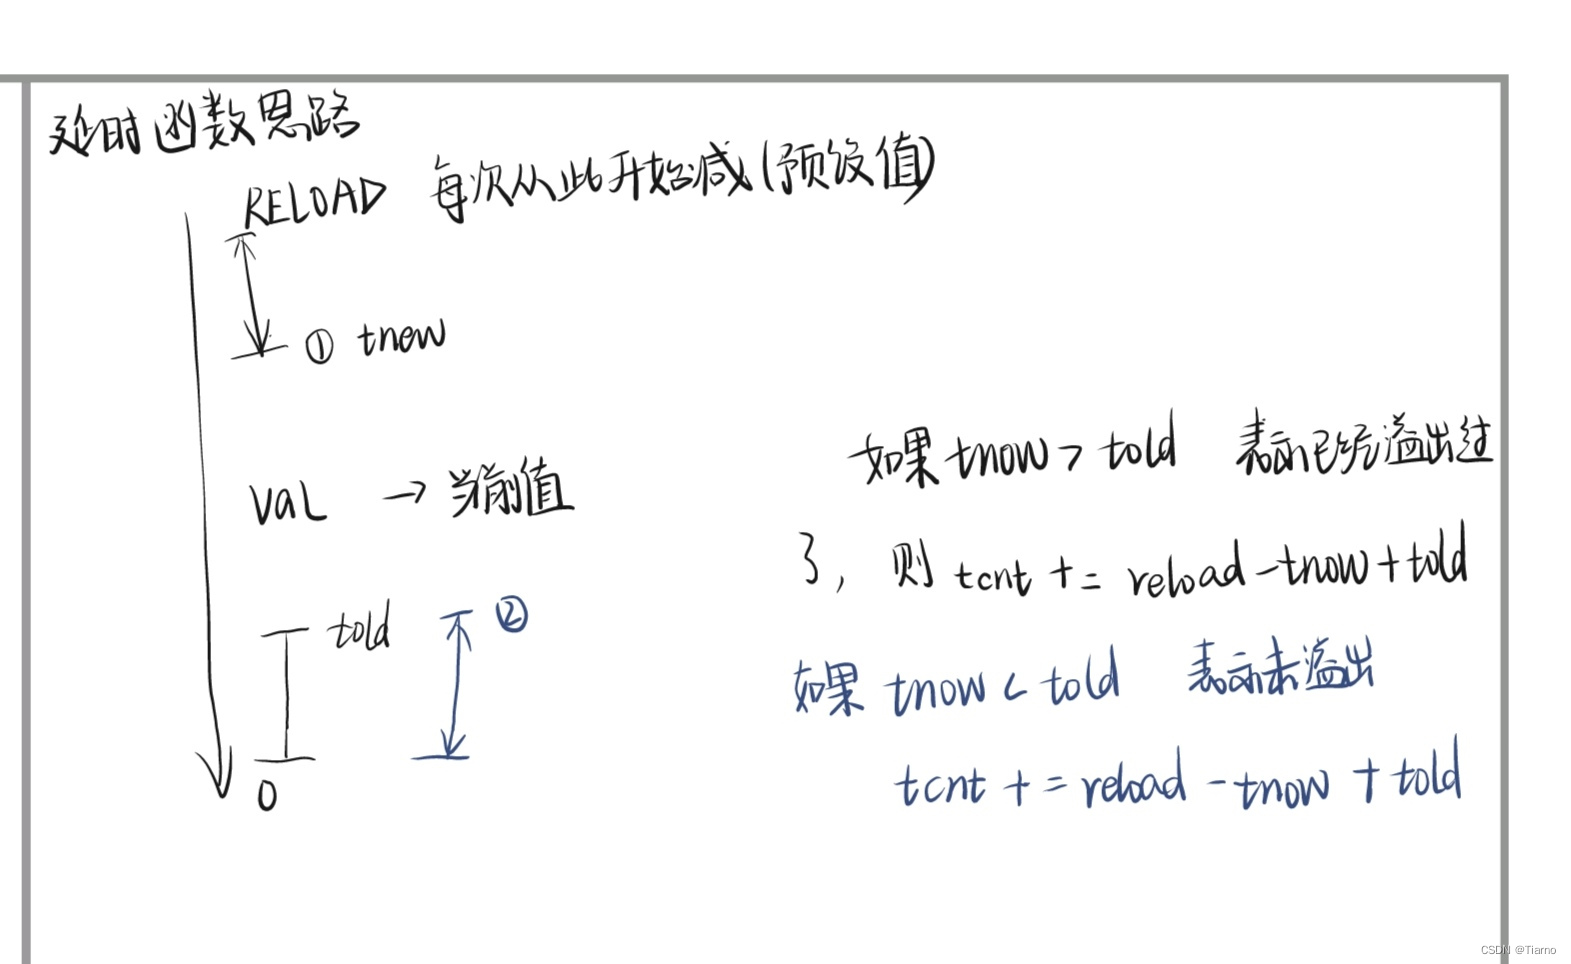 延时函数思路
RELOAD 每次从此开始减(预设值)
① tnow
如果 tnow > told 表示已经溢出过
val → 当前值
了, 则 tcnt += reload - tnow + told
told ②
如果 tnow < told 表示未溢出
tcnt += reload - tnow + told
0
CSDN @Tiarno